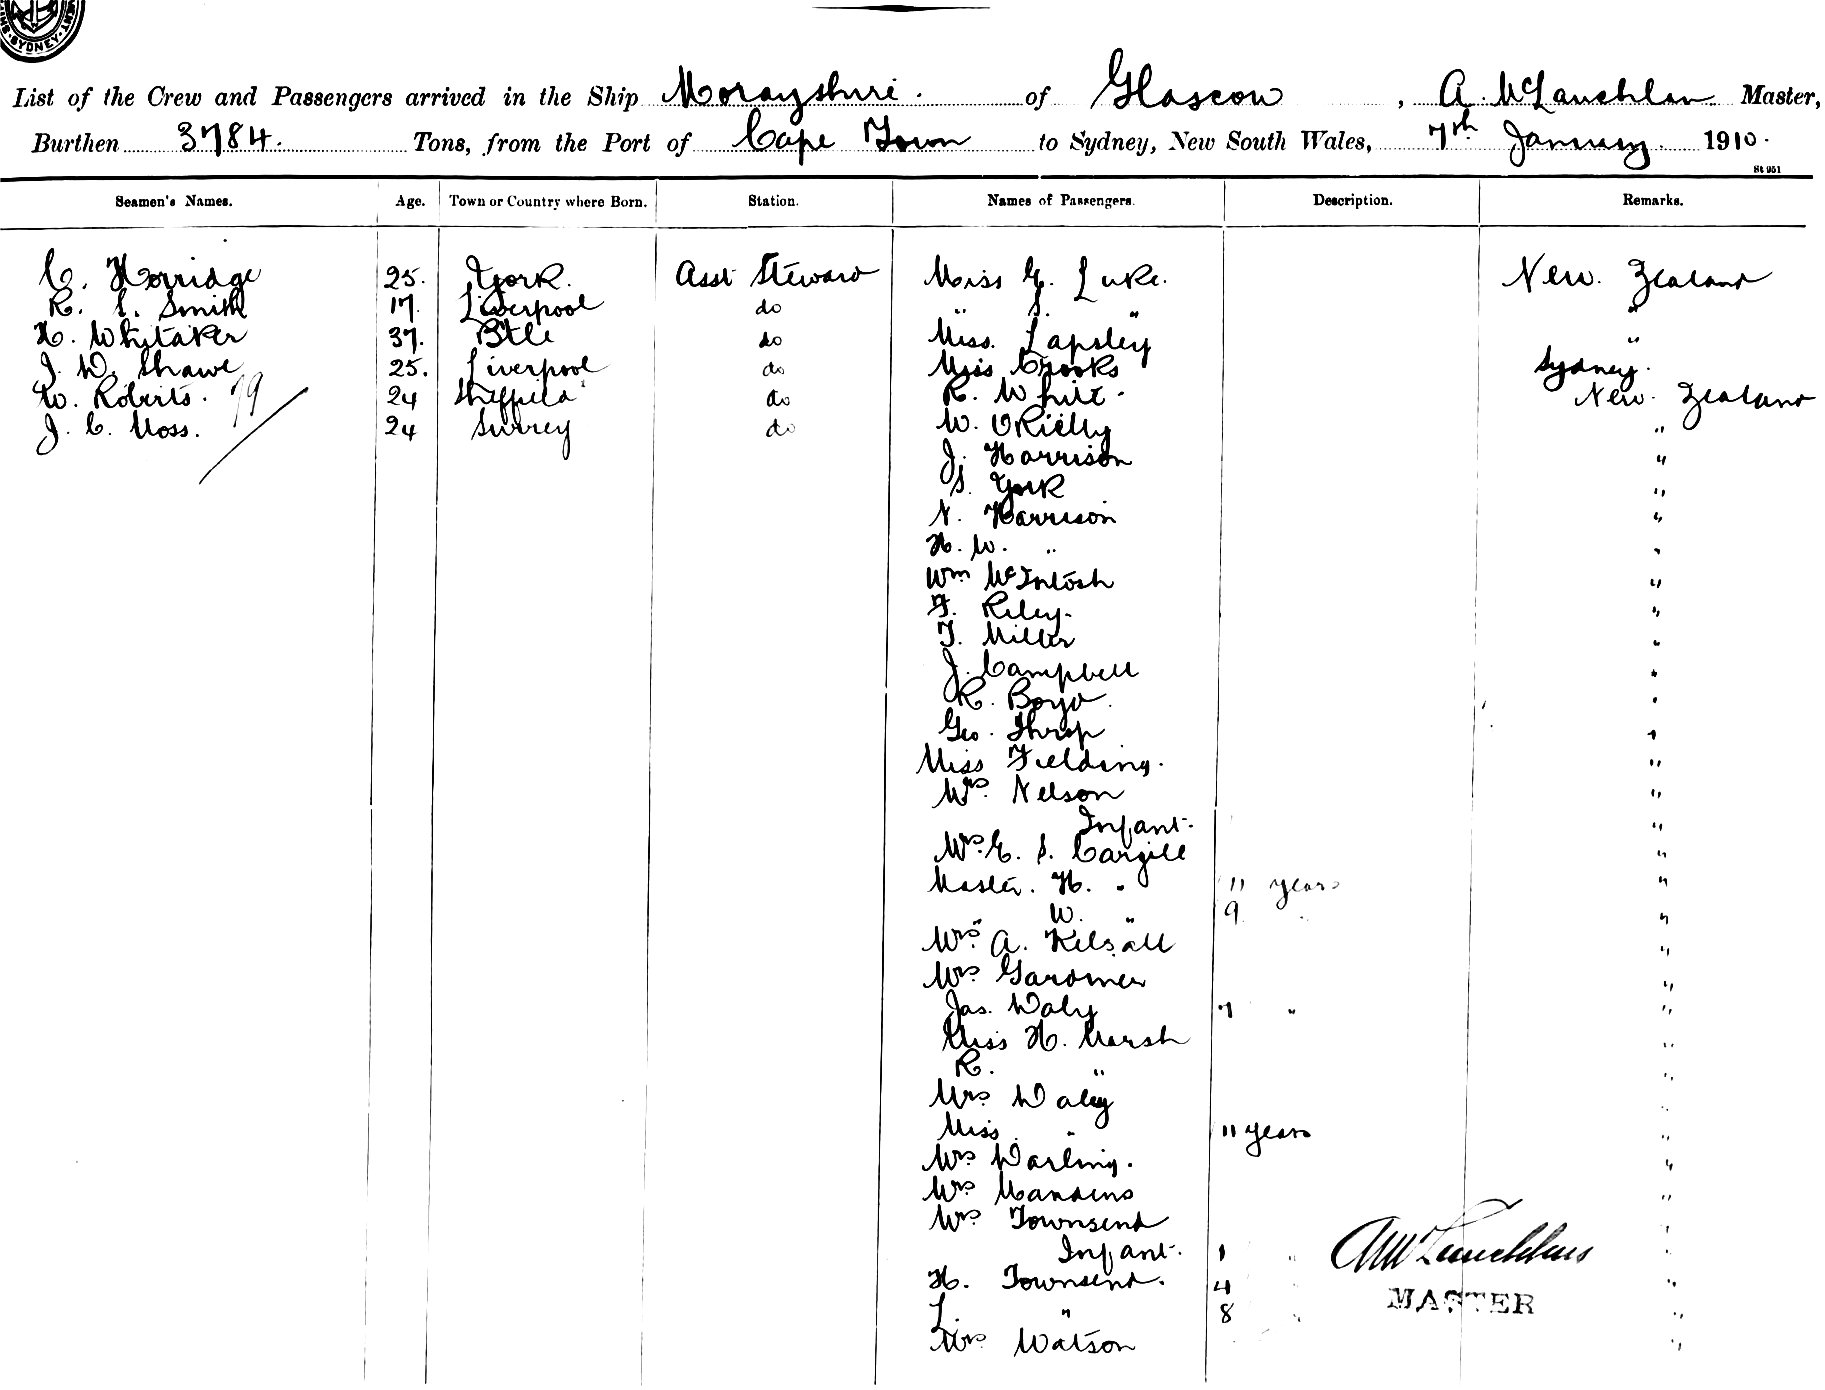 SYDNEY
List of the Crew and Passengers arrived in the Ship Morayshire. of Glascow, A. McLauchlan Master,
Burthen 3784. Tons, from the Port of Cape Town to Sydney, New South Wales, 7th January 1910.
St 951
Seamen's Names. Age. Town or Country where Born. Station. Names of Passengers. Description. Remarks.
C. Horridge 25. York. Asst Steward Miss G. Luke. New. Zealand
R. S. Smith 17. Liverpool do " S. " "
H. Whitaker 37. do Miss. Lapsley "
J. W. Shawe 25. Liverpool do Miss Crooks Sydney.
W. Roberts. 79 24 Sheffield do R. White. New. Zealand
J. C. Moss. 24 Surrey do W. O'Rielly "
J. Harrison "
S. York "
N. Harrison "
H. W. " "
Wm McIntosh "
F. Riley. "
T. Miller "
J. Campbell "
R. Boyd. "
Geo. Throp "
Miss Fielding. "
Mrs. Nelson "
Infant. "
Mrs. E. S. Cargill "
Master. H. " 11 years "
" W. " 9 " "
Mrs. A. Kelsall "
Mrs Gardiner "
Jas. Daly 7 " "
Miss H. Marsh "
R. " "
Mrs Daly "
Miss " 11 years "
Mrs Darling. "
Mrs "
Mrs Townsend "
Infant. 1 " "
H. Townsend. 4 " "
L. " 8 " "
Mrs Watson "
A McLauchlan
MASTER